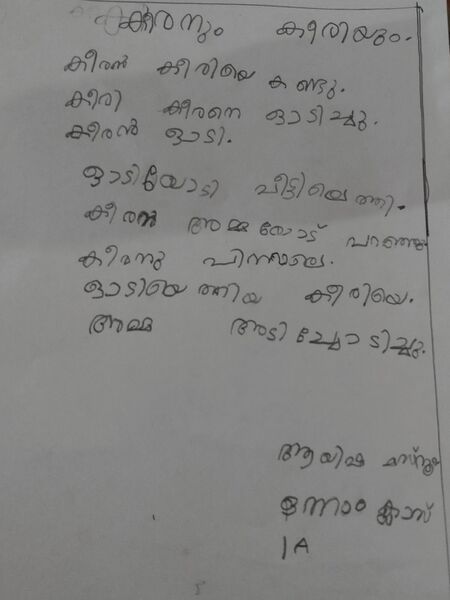 കീരനും കീരിയും.
കീരൻ കീരിയെ കണ്ടു.
കീരി കീരനെ ഓടിച്ചു.
കീരൻ ഓടി.
ഓടിയോടി വീട്ടിലെത്തി.
കീരൻ അമ്മയോട് പറഞ്ഞു
കീരനു പിന്നാലെ.
ഓടിയെത്തിയ കീരിയെ.
അമ്മ അടിച്ചോടിച്ചു.
ആയിഷ
ഒന്നാം ക്ലാസ്
1A